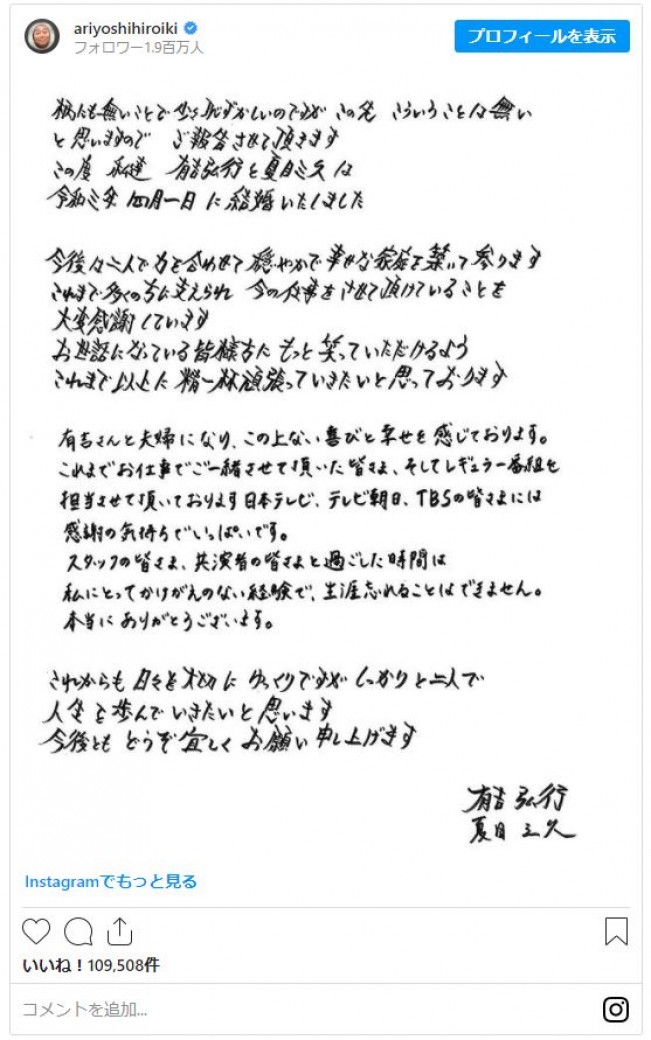 ariyoshihiroiki
フォロワー1.9百万人
プロフィールを表示
柄にも無いことで少し恥ずかしいのですが この先 こういうことは無い
と思いますので ご報告させて頂きます
この度 私達 有吉弘行と夏目三久は
令和三年 四月一日 に結婚いたしました
今後は二人で力を合わせて 穏やかで幸せな家庭を築いて参ります
これまで多くの方に支えられ 今の仕事をさせて頂けていることを
大変感謝しています
お世話になっている皆様方に もっと笑っていただけるよう
これまで以上に 精一杯頑張っていきたいと思っております
有吉さんと夫婦になり、この上ない喜びと幸せを感じております。
これまでお仕事でご一緒させて頂いた皆さま、そしてレギュラー番組を
担当させて頂いております日本テレビ、テレビ朝日、TBSの皆さまには
感謝の気持ちでいっぱいです。
スタッフの皆さま、共演者の皆さまと過ごした時間は
私にとってかけがえのない経験で、生涯忘れることはできません。
本当にありがとうございます。
これからも 日々を大切に ゆっくりですが しっかりと二人で
人生を歩んでいきたいと思います
今後とも どうぞ宜しく お願い申し上げます
有吉弘行
夏目三久
Instagramでもっと見る
いいね！109,508件
コメントを追加...